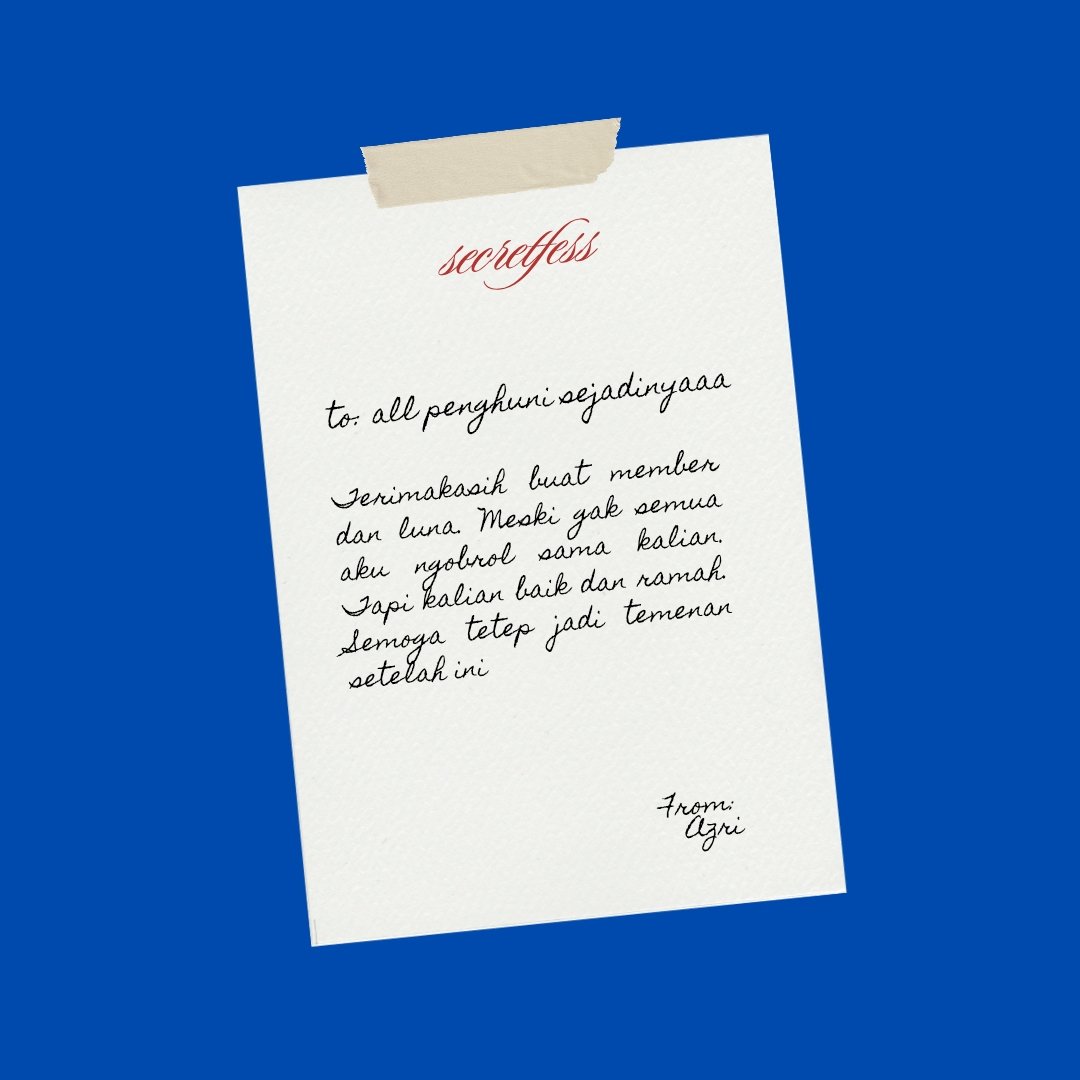 secretfess
to: all penghuni sejadinyaaa
Terimakasih buat member
dan luna. Meski gak semua
aku ngobrol sama kalian.
Tapi kalian baik dan ramah.
Semoga tetep jadi temenan
setelah ini
From:
Azri